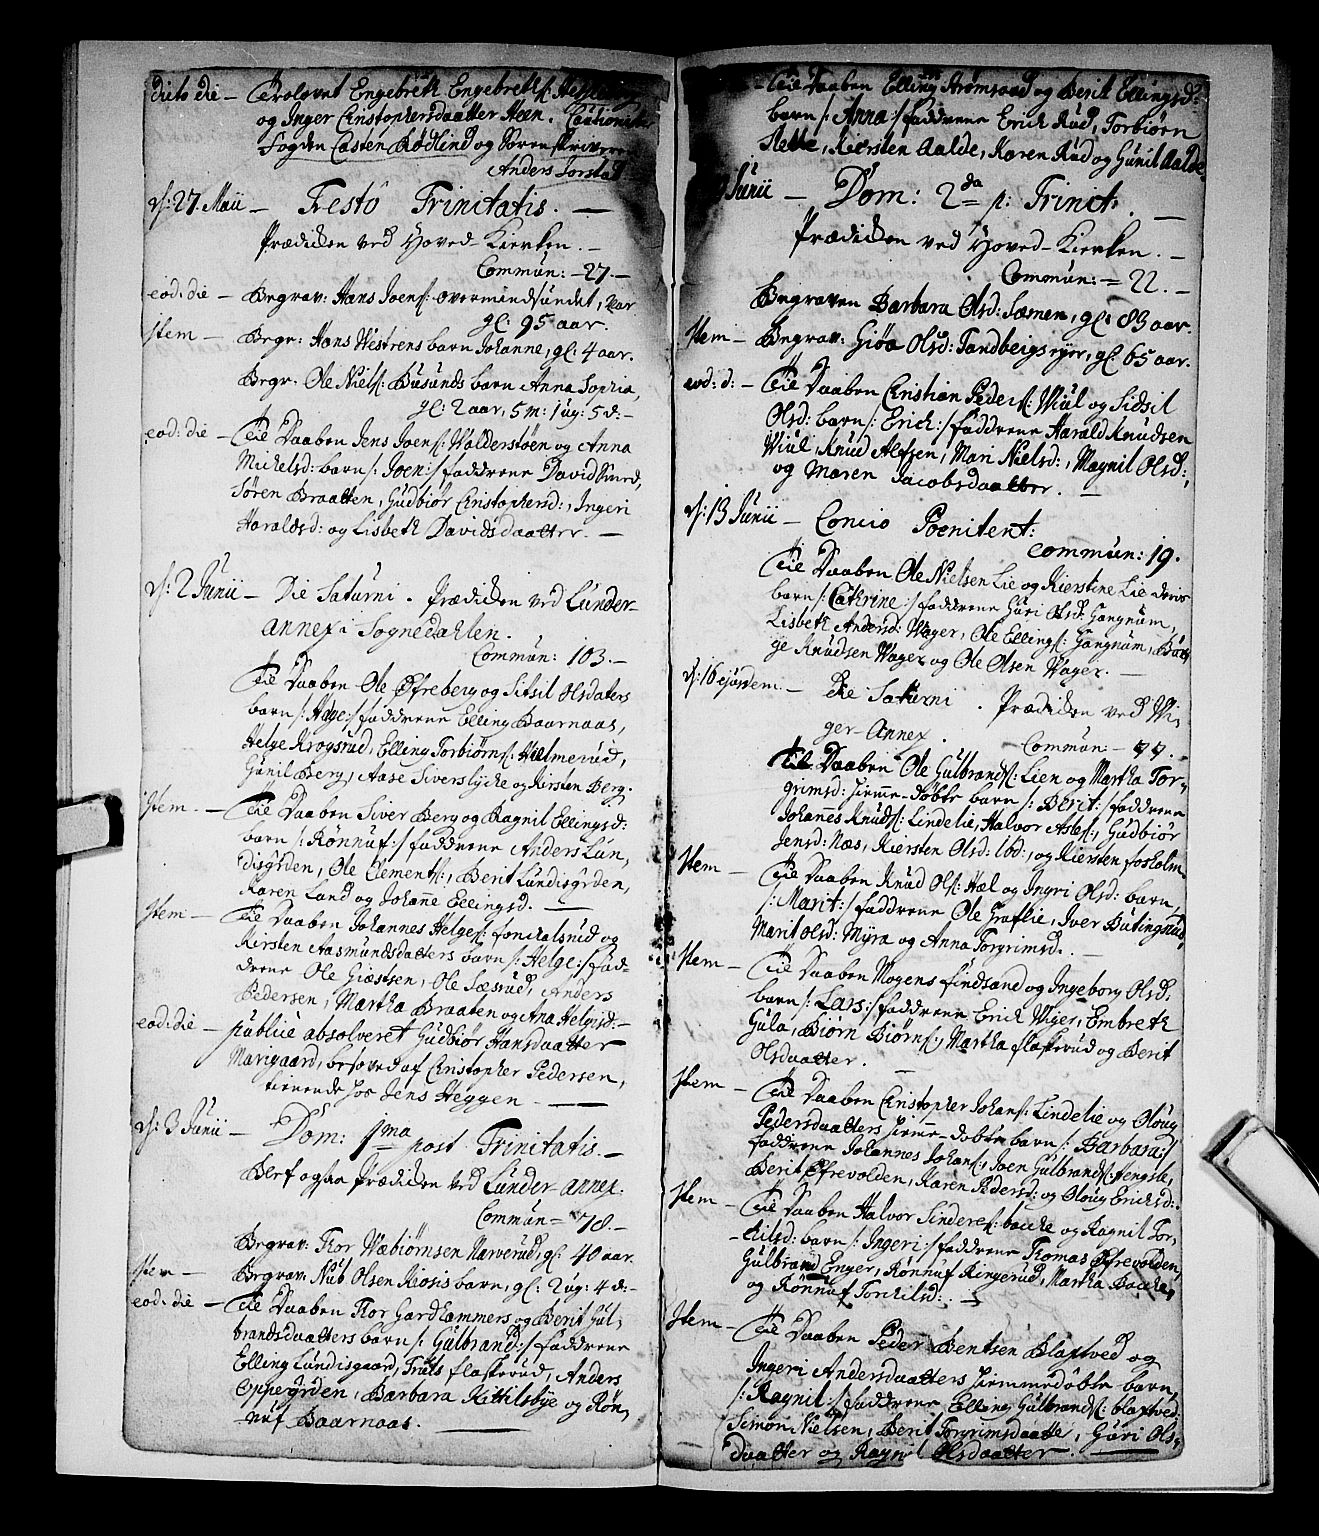 dicto die – Trolovet Engebreth Engebrethſ: Hesselberg
og Inger Christophersdaatter Heen. Cautionister
Fogden Casten Rødlind og Sorenskriveren
Anders Torstad
d: 27 Maii – Festô Trinitatis. –
Prædiken ved Hoved-Kierken. –
Commun: – 27. –
eod: die – Begrav: Hans Joenſ: overmindsundet, var
gl: 95 aar.
Item – Begr: Hans Westrens barn Johanne, gl: 4 aar.
Begr: Ole Nielſ: Busunds barn Anna Sophia,
gl: 2 aar, 5 m: 1 ug: 5 d: –
eod: die – Til Daaben Jens Joenſ: Walderstøen og Anna
Michelsd: barn /: Joen :/ faddrene David Smed,
Søren Braatten, Gudbiør Christophersd:, Ingeri
Haraldsd: og Lisbeth Davidsdaatter. –
d: 2 Junii – Die Saturni. Prædiken ved Lunder-
annex i Sognedahlen.
Commun: 103. –
Til Daaben Ole Øfreberg og Sitsil Olsdaters
barn /: Helge :/ faddrene Elling Baarnaas,
Helge Krogsrud, Elling Torbiørnſ: Hælmerud,
Gunil Berg, Aase Siverslycke og Kirsten Berg.
Item. – Til Daaben Siver Berg og Ragnil Ellingsd:
barn /: Rønnuf :/ faddrene Anders Lun,
disgrden, Ole Clementſ:, Berit Lundisgrden,
Karen Land og Johanne Ellingsd. –
Item – Til Daaben Johannes Helgeſ: Fonkalsrud og
Kirsten Aasmundsdatters barn /: Helge :/ fad-
drene Ole Giæstsen, Ole Sæsrud, Anders
Pedersen, Martha Braaten og Ana Helgisd: –
eod: die – publicè absolveret Gudbiør Hansdaatter
Marigaard, besovet af Christopher Pedersen,
tienende hos Jens Heggen –
d: 3 Junii – Dom: 1ma post Trinitatis. –
Blef ogsaa Prædiken ved Lunder-annex.
Commun = 78. –
Begrav: Thor Wæbiørnsen Narverud, gl: 40 aar.
Item – Begrav: Nub Olsen Kiosis barn, gl: 2 ug: 4 d: –
eod: die – Til Daaben Thor Gardhammers og Berit Gul,
brandsdaatters barn /: Gulbrand :/ faddrene
Elling Lundisgaard, Truls Flaskerud, Anders
Oppegrden, Barbara Kittilsbye og Røn,
nuf Baarnaas. –
Til Daaben Elling Strømsoad og Berit Ellingsd:
barn /: Anna :/ faddrene Erich Rud, Torbiørn
Slette, Kiersten Aalde, Karen Rud og Gunil Aalde.
Junii – Dom: 2da p: Trinit: –
Prædiken ved Hoved-Kierken. –
Commun: = 22. –
Begraven Barbara Olsd: Sæmen, gl: 83 aar.
Item – Begrav: Giøa Olsd: Tandbergs eyer, gl: 65 aar.
eod: d: – Til Daaben Christian Pederſ: Wiul og Sidsil
Olsd: barn /: Erich :/ faddrene Harald Knudsen
Wiul, Knud Alfsen, Mari Nielsd:, Magnil Olsd:,
og Maren Jacobsdaatter. –
d: 13 Junii – Concio Poenitent:
Commun: 19.
Til Daaben Ole Nielsen Lie og Kierstine Lie deris
barn /: Cathrine :/ faddrene Guri Olsd: Gangnum,
Lisbeth Andersd: Wager, Ole Ellingſ: Gangnum, Bør,
ge Knudsen Wager og Ole Olsen Wager. –
d: 16 ejusdem. – Die Saturni. Prædiken ved Wi-
ger-Annex. Commun – 77. –
Til Daaben Ole Gulbrandſ: Lien og Martha Tor-
grimsd: hieme-døbte barn /: Berit :/ faddrene
Johannes Knudſ: Lindelie, Halvor Asleſ:, Gudbiør
Jensd: Næs, Kiersten Olsd: ibd:, og Kiersten Fosholm.
Item – Til Daaben Knud Olſ: Hæl og Ingri Olsd: barn,
/: Marit :/ faddrene Ole Graflie, Iver Butingsrud,
Marit Olsd: Myra og Anna Torgrimsd. –
Item – Til Daaben Mogens Findsand og Ingeborg Olsd:
barn /: Lars :/ faddrene Erich Wiger, Embreth
Gula, Biørn Biørnſ:, Martha Flaskerud og Berit
Olsdaatter. –
Item – Til Daaben Christopher Johanſ: Lindelie og Oloug
Pedersdaatters hieme-døbte barn /: Barbara :/
faddrene Johannes Johanſ:, Joen Gulbrandſ: Hengsle,
Berit Øfrevolden, Karen Pedersd: og Oloug Erichsd:
Item – Til Daaben Halvor Sindereſ: backe og Ragnil Tor,
kilsd: barn /: Ingeri :/ faddrene Thomas Øfrevolden,
Gulbrand Enger, Rønnuf Ringerud, Martha Backa,
og Rønnuf Torchilsd: –
Item – Til Daaben Peder Bentsen Blaxtved og
Ingeri Andersdaatters hiemmedøbte barn,
/: Ragnil :/ faddrene Elling Gulbrandſ: blaxtved,
Simon Nielsen, Berit Torgrimsdaatter, Guri Ols,
daatter og Ragnil Olsdaatter. –